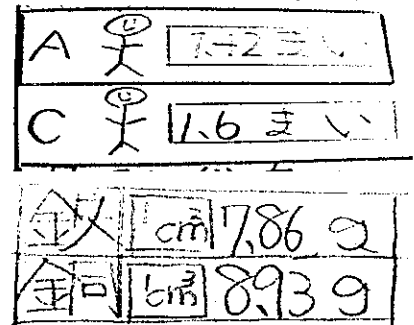 A 1.42まい
C 1.6まい
鉄 1cm³ 7.86g
銅 1cm³ 8.93g